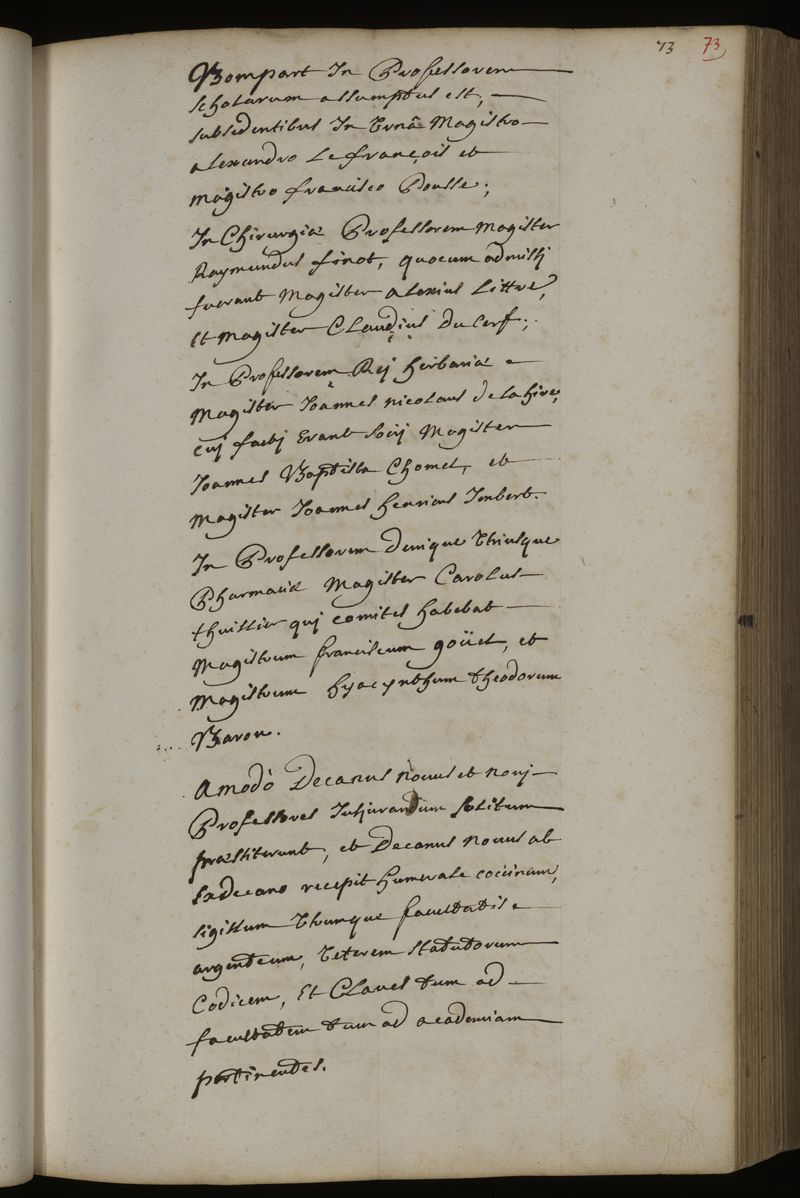 73 73
Bompart In Professorem
scholarum assumptus est,
subsedentibus In Urnâ Magistro
alexandro Le françois et
magistro francisco Pousse;
In Chirurgiæ Professorem magister
Raymundus finot, quocum admissj
fuerant Magister alexius Littre,
et magister Claudius Du Cerf;
In Professorem Rej herbariæ
magister Joannes nicolaus de la hire,
cuj factj erant socij Magister
Joannes Baptista Chomel, et
magister Joannes henricus Imbert.
In Professorem denique Utriusque
Pharmaciæ Magister Carolus
thuillier quj comites habebat
magistrum franciscum goüet, et
magistrum hyacynthum theodorum
Baron.
amodò Decanus nouus et nouj
Professores Jusjurandum solitum
præstiterunt, et Decanus nouus ab
Exdecano recepit humerale coccinum,
sigillum Utrumque facultatis
argenteum, Veterem statutorum
Codicem, Et Claues tum ad
facultatem tum ad academiam
pertinentes.